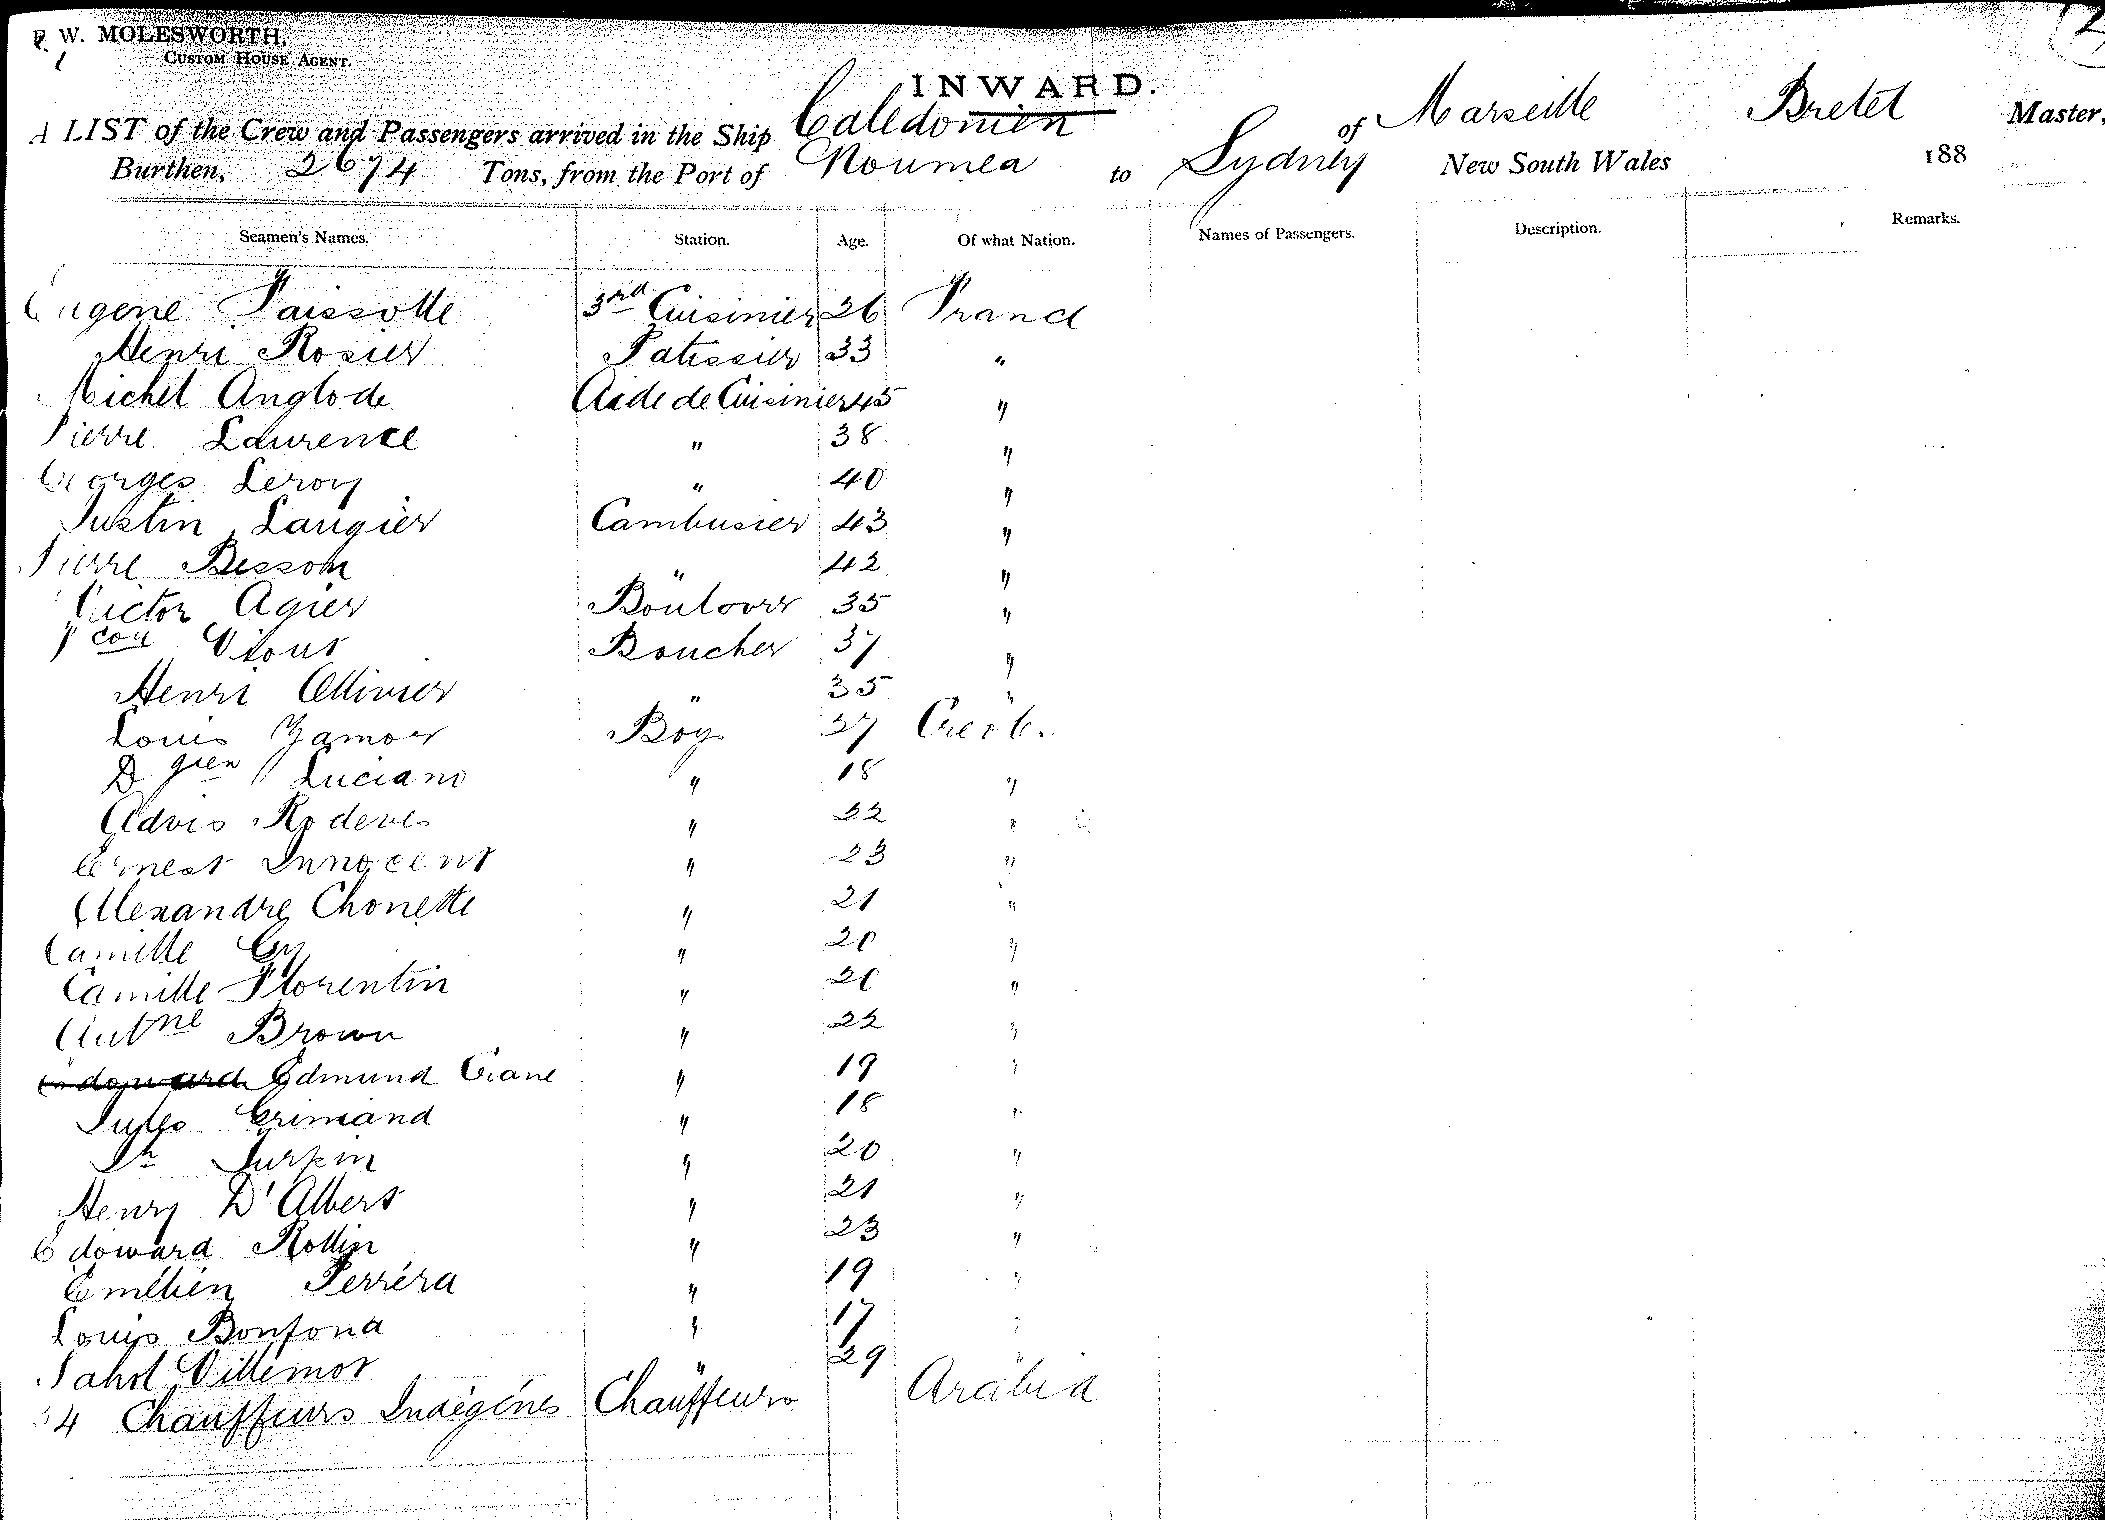 W. MOLESWORTH,
CUSTOM HOUSE AGENT.
INWARD.
A LIST of the Crew and Passengers arrived in the Ship Caledonien of Marseille Bretel Master,
Burthen, 2674 Tons, from the Port of Noumea to Sydney New South Wales 188
Seamen's Names. Station. Age. Of what Nation. Names of Passengers. Description. Remarks.
Eugene 3rd Cuisinier 26 France
Henri Rosier Patissier 33 "
Michel Anglode Aide de Cuisinier 45 "
Pierre Laurence " 38 "
Georges Leroy " 40 "
Justin Laugier Cambusier 43 "
Pierre Besson " 42 "
Victor Agier 35 "
Boucher 37 "
Henri Ollivier " 35 "
Louis Zamor Boy 27 Creole
Luciano " 18 "
" 22 "
Ernest Innocent " 23 "
Alexandre Chonette " 21 "
Camille Gy " 20 "
Camille Florentin " 20 "
Brown " 22 "
Edmund " 19 "
Jules Grimand " 18 "
Jh " 20 "
Henry D'Albert " 21 "
Edoward Rollin " 23 "
Emélien Perréra " 19 "
Louis Bonfond " 17 "
Villemot " 29 "
34 Chauffeurs Indigénes Chauffeurs Arabia